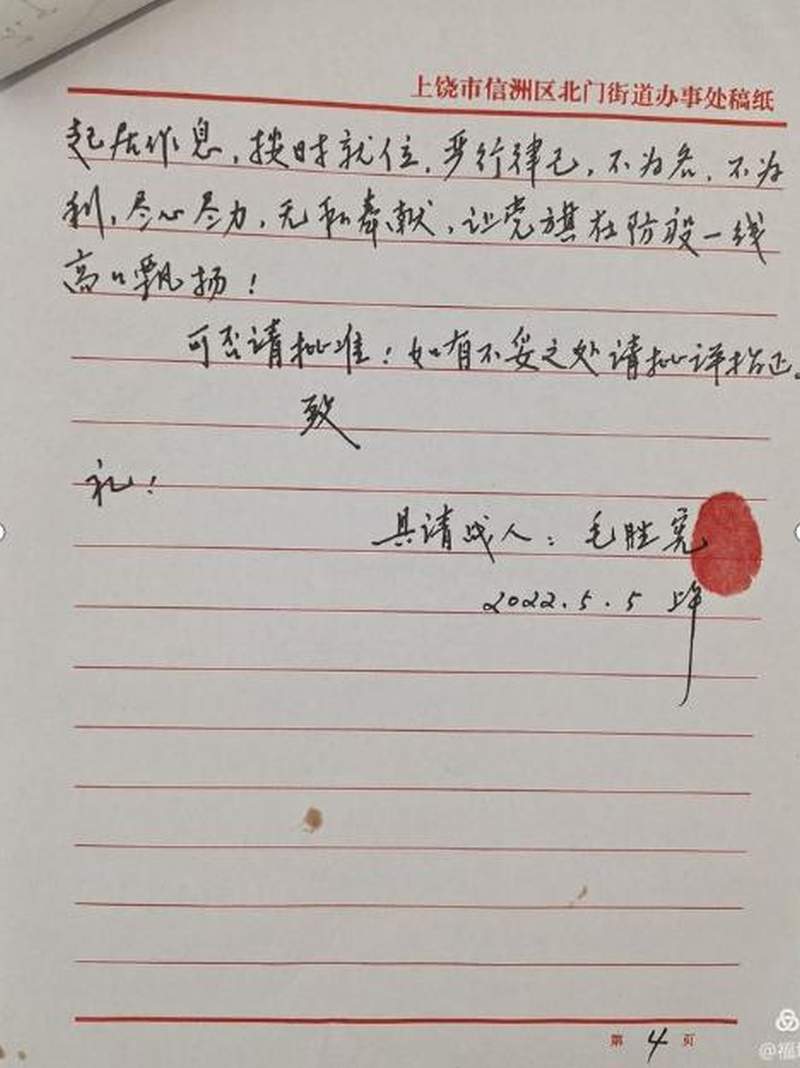 上饶市信洲区北门街道办事处稿纸
起居作息，按时就位，严行律己，不为名，不为
利，尽心尽力，无私奉献，让党旗在防疫一线
高高飘扬！
可否请批准！如有不妥之处请批评指正。
致
礼！
具请战人：毛胜
2022.5.5 上午
第 4 页
@福